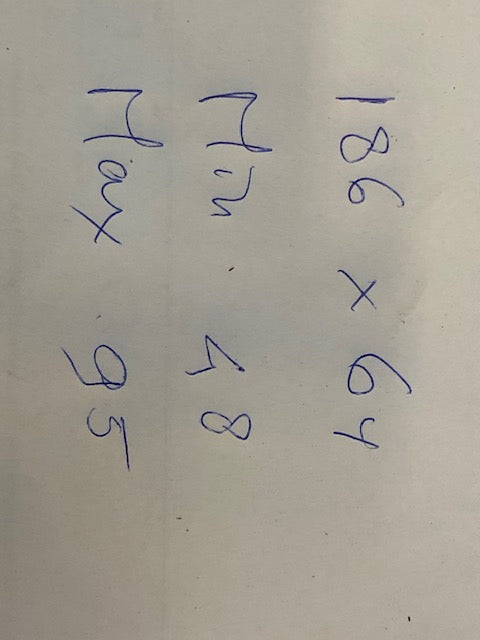 186 x 64
Min. 48
Max. 95